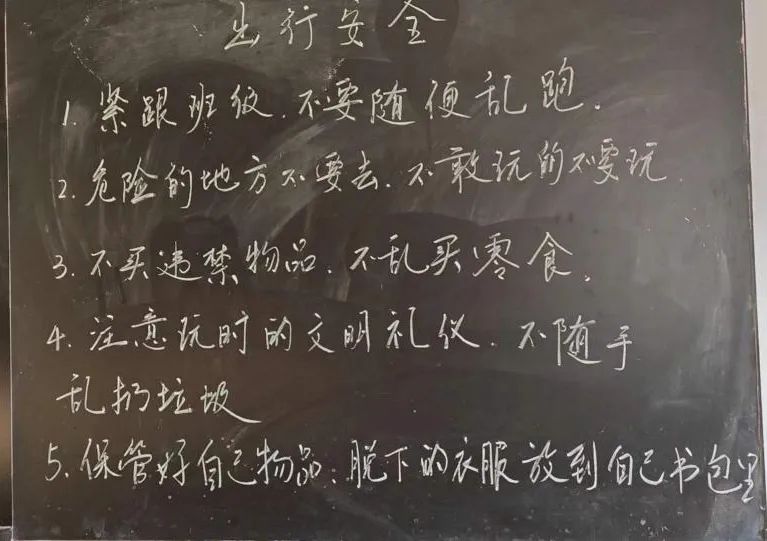 出行安全
1. 紧跟班级.不要随便乱跑.
2. 危险的地方不要去.不敢玩的不要玩.
3. 不买违禁物品.不乱买零食.
4. 注意玩时的文明礼仪.不随手
乱扔垃圾
5. 保管好自己物品:脱下的衣服放到自己书包里